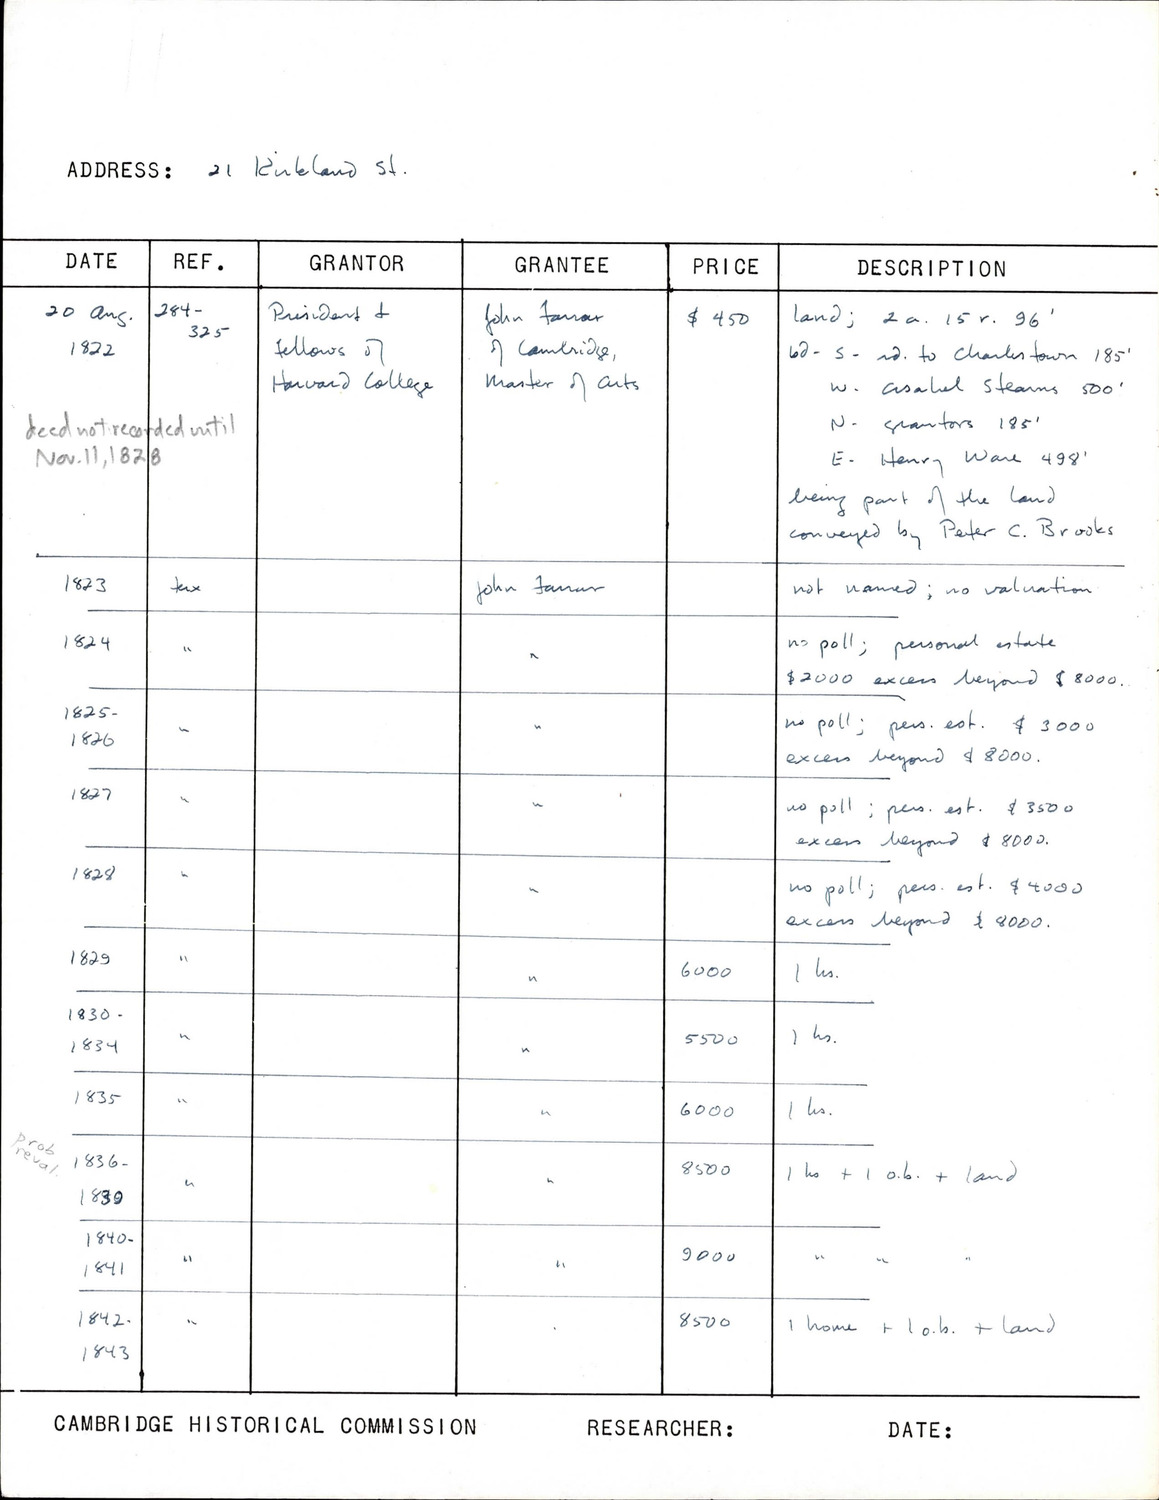 ADDRESS: 21 Kirkland St.
DATE REF. GRANTOR GRANTEE PRICE DESCRIPTION
20 Aug. 284- President & John Farrar $ 450 land; 2 a. 15 r. 96'
1822 325 Fellows of of Cambridge, bd- S- rd. to Charlestown 185'
Harvard College Master of Arts W. Asahel Stearns 500'
deed not recorded until N- grantors 185'
Nov. 11, 1828 E- Henry Ware 498'
being part of the land
conveyed by Peter C. Brooks
1823 tax John Farrar not named; no valuation
1824 " " no poll; personal estate
$2000 excess beyond $8000.
1825- " " no poll; pers. est. $3000
1826 excess beyond $8000.
1827 " " no poll; pers. est. $3500
excess beyond $8000.
1828 " " no poll; pers. est. $4000
excess beyond $8000.
1829 " " 6000 1 hs.
1830- " " 5500 1 hs.
1834
1835 " " 6000 1 hs.
prob
reval.
1836- " " 8500 1 hs + 1 o.b. + land
1839
1840- " " 9000 " " "
1841
1842- " 8500 1 home + 1 o.b. + land
1843
CAMBRIDGE HISTORICAL COMMISSION RESEARCHER: DATE: